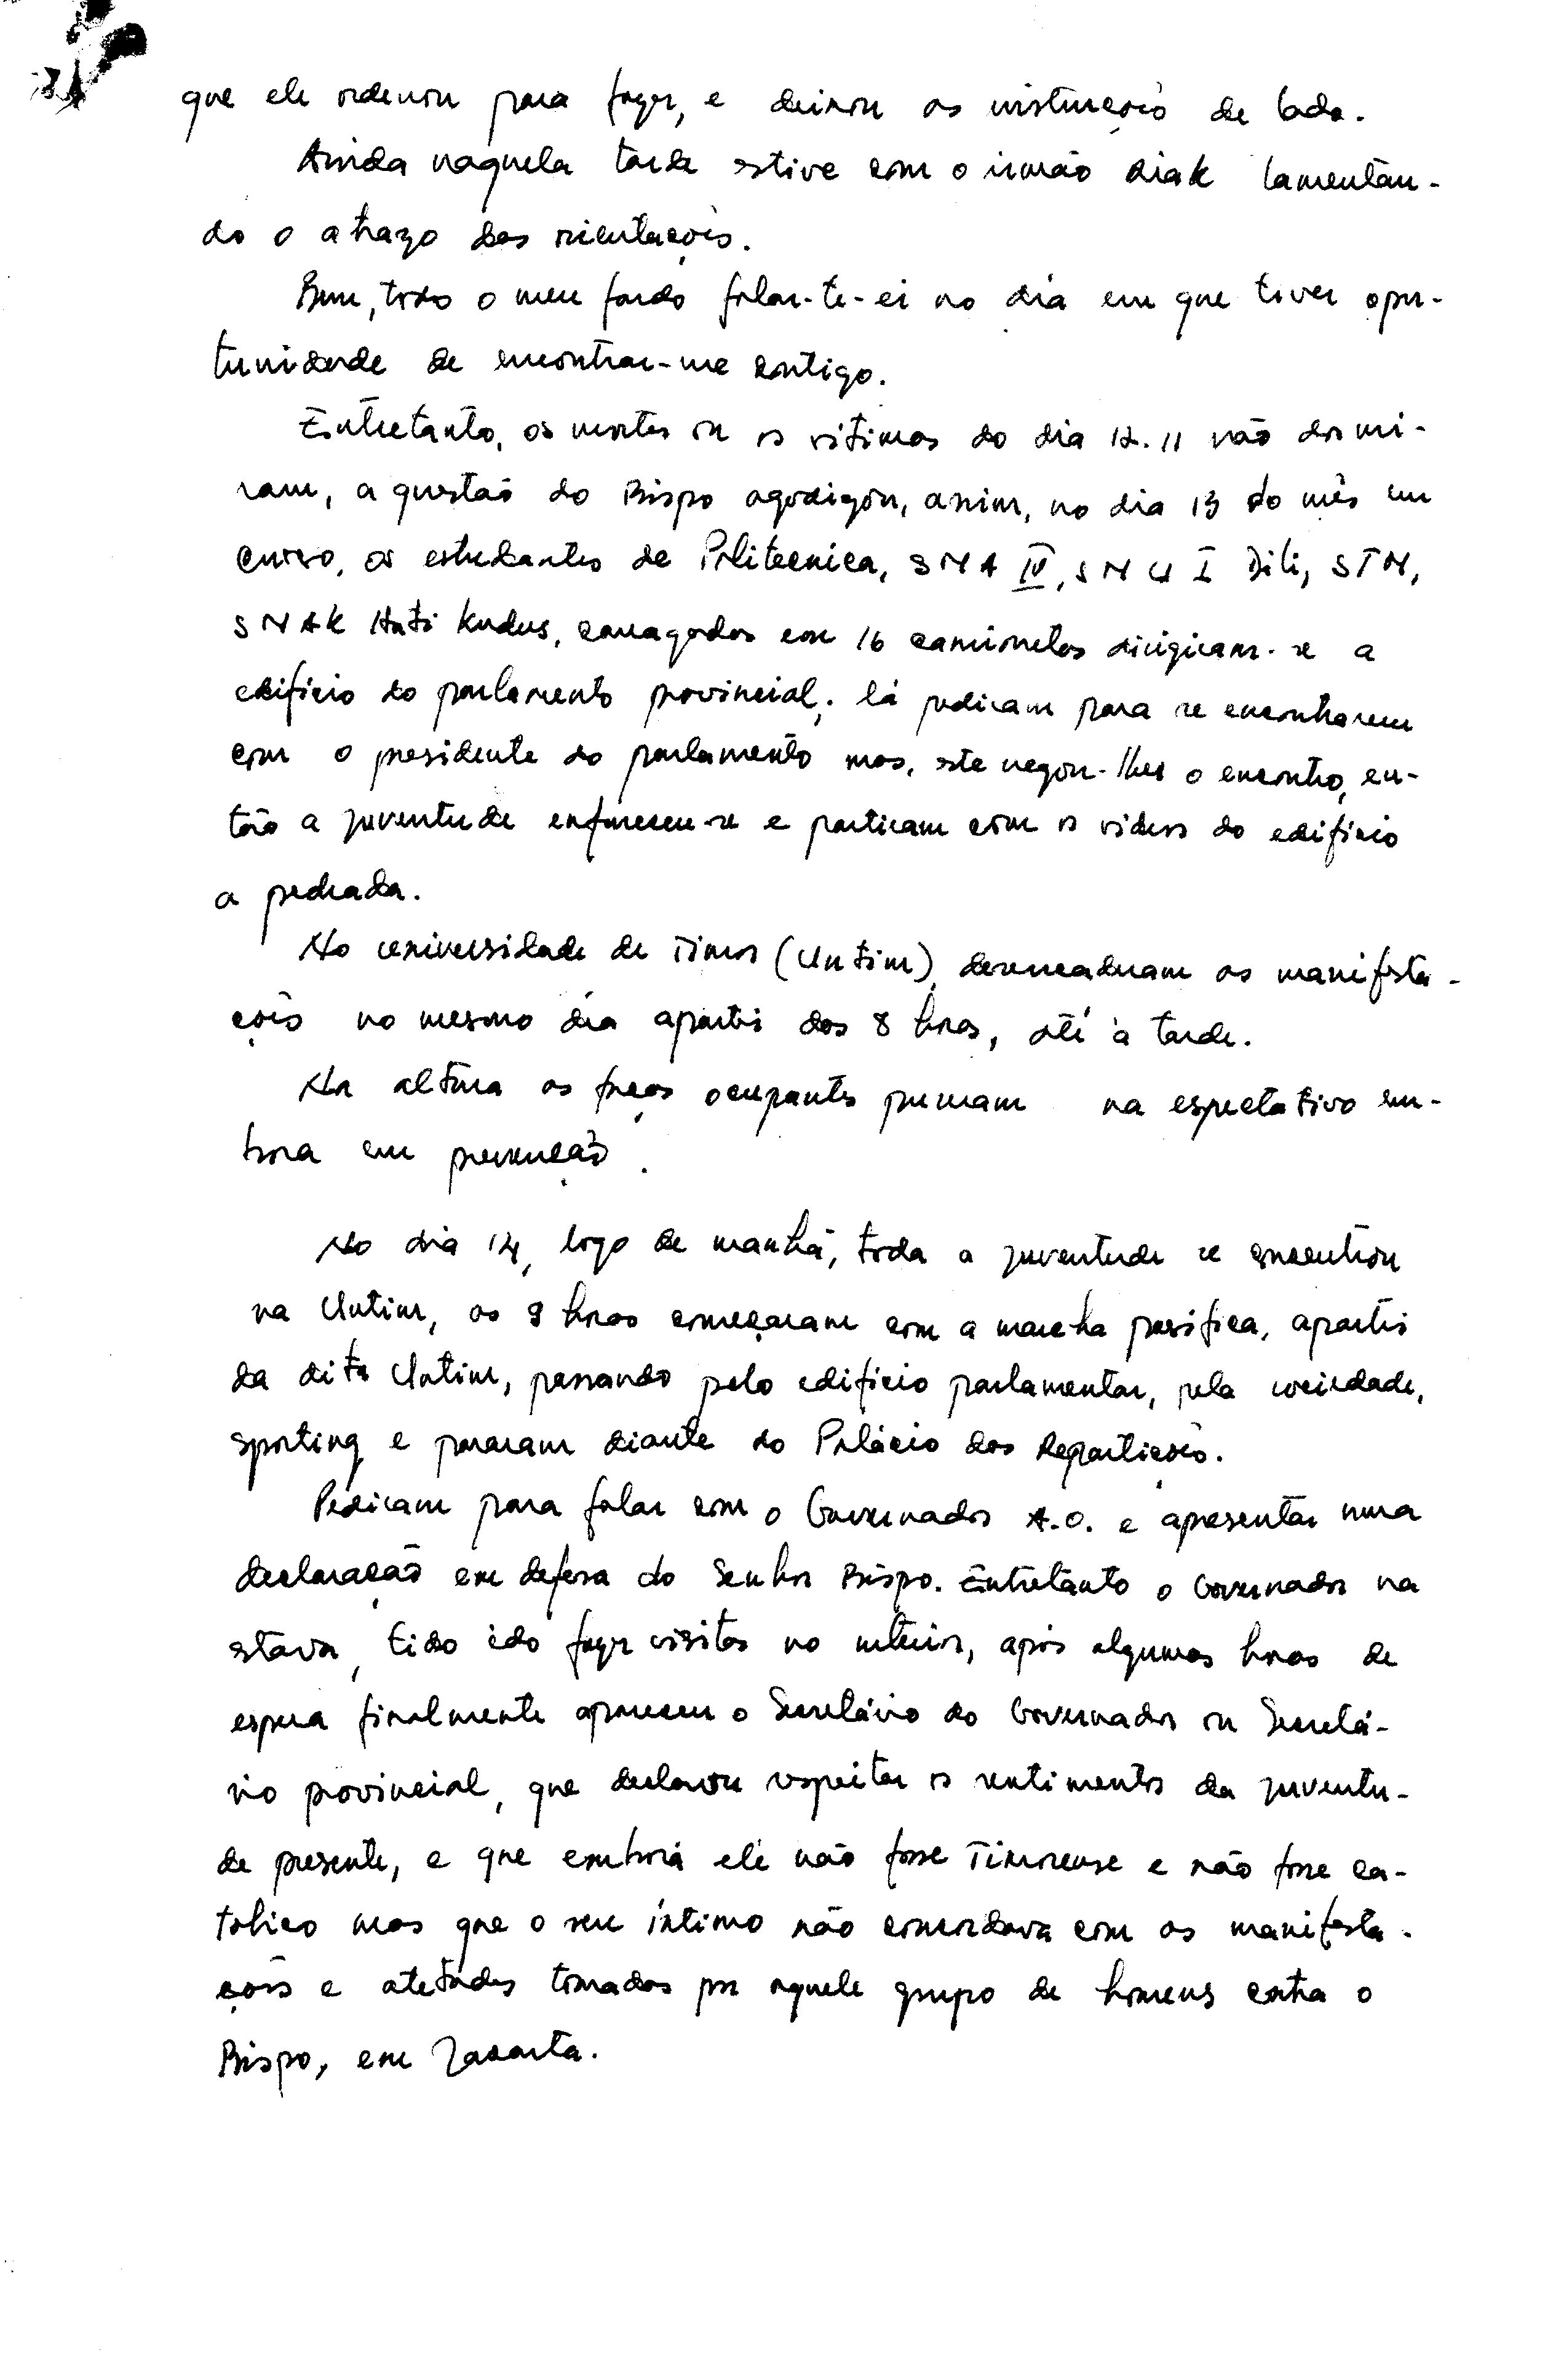 que ele ordenou para fazer, e deixou as instruções de lado.
Ainda naquela tarde estive com o irmão Diak lamentan-
do o atrazo das orientações.
Bem, todo o meu fardo falar-te-ei no dia em que tiver opor-
tunidade de encontrar-me contigo.
Entretanto, os mortos ou as vitimas do dia 12.11 não dormi-
ram, a questão do Bispo agodizou, assim, no dia 13 do mês em
curso, os estudantes de Politecnica, SMA IV, SMU I Dili, STM,
SMAK Hati Kudus, carragados em 16 camionetas dirigiram-se a
edifício do parlamento provincial; lá pediram para se encontrarem
com o presidente do parlamento mas, este negou-lhes o encontro, en-
tão a juventude enfureceu-se e partiram com os vidros do edifício
a pedrada.
Na universidade de Timor (Untim), desencadearam as manifesta-
ções no mesmo dia apartir das 8 horas, até à tarde.
Na altura as forças ocupantes puseram na espectativa em-
bora em prevenção.
No dia 14, logo de manhã, toda a juventude se concentrou
na Untim, as 9 horas começaram com a marcha pasifica, apartir
da dita Untim, passando pelo edifício parlamentar, pela sociedade,
Sporting e pararam diante do Palácio das Repartições.
Pediram para falar com o Governador A.O. e apresentar numa
declaração em defesa do Senhor Bispo. Entretanto o Governador na
stava, tido ido fazer visitas no interior, após algumas horas de
espera finalmente apareceu o Secretário do Governador ou Secretá-
rio provincial, que declarou respeitar os sentimentos da juventu-
de presente, e que embora ele não fosse Timorense e não fosse ca-
tolico mas que o seu íntimo não concordava com as manifesta-
ções e atetudes tomadas por aquele grupo de homens contra o
Bispo, em Jacarta.